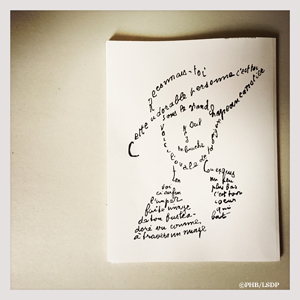 Reconnais-toi
Cette adorable personne c'est toi
sous le grand chapeau canotier
Oeil
la bouche
l'ovale de
cou exquis
ci enfin
l'impar
faite image
de ton buste a
doré vu comme
à travers un nuage
un peu
plus bas
c'est ton
coeur
qui
bat
@PHB/LSDP